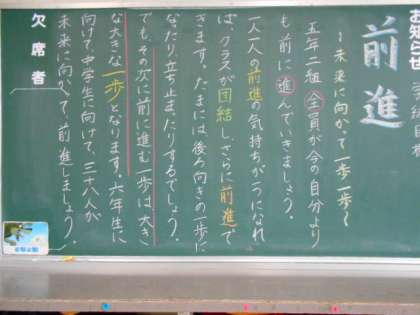 お知らせ
前進
〜未来に向かって一歩一歩〜
五年二組全員が今の自分より
も前に進んでいきましょう。
一人一人の前進の気持ちが一つになれ
ば、クラスが団結し、さらに前進で
きます。たまには後ろ向きの一歩に
なったり、立ち止まったりするでしょう。
でも、その次に前に進む一歩は、大き
な大きな一歩となります。六年生に
向けて、中学生に向けて、三十八人が
未来に向かって前進しましょう。
欠席者